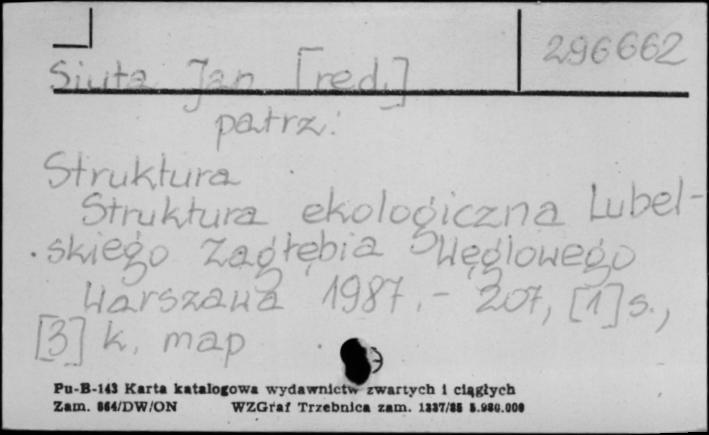 296662
Siuta Jan [red.]
patrz:
Struktura
Struktura ekologiczna Lubel-
skiego Zagłębia Węglowego
Warszawa 1987.- 207, [1] s.,
[3] k. map
Pu-B-143 Karta katalogowa wydawnictw zwartych i ciągłych
Zam. 864/DW/ON WZGraf Trzebnica zam. 1337/85 5.980.000